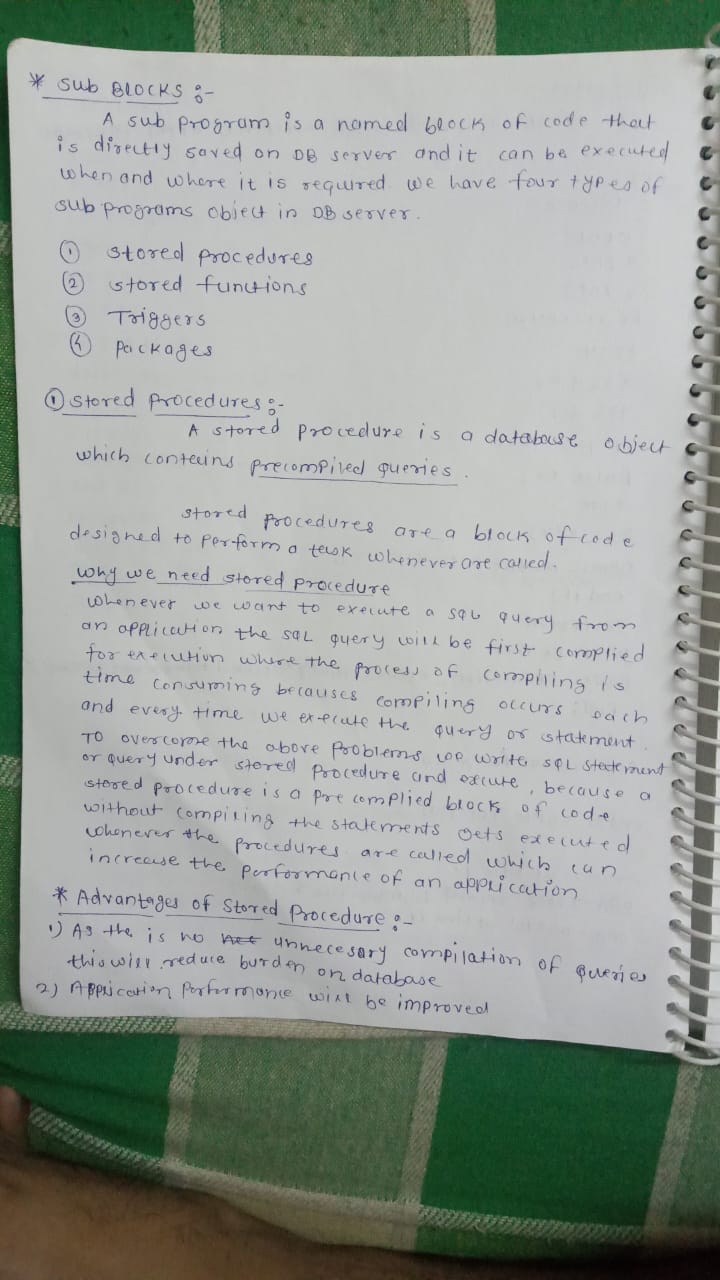 * Sub BLOCKS :-
A sub program is a named block of code that
is directly saved on DB server and it can be executed
when and where it is required. we have four types of
sub programs object in DB server.
① stored procedures
② stored functions
③ Triggers
④ Packages
① stored procedures :-
A stored procedure is a database object
which contains precompiled queries.
stored procedures are a block of code
designed to perform a task whenever are called.
why we need stored procedure
whenever we want to execute a sql query from
an application the sql query will be first complied
for execution where the process of compiling is
time consuming becauses compiling occurs each
and every time we execute the query or statement.
To overcome the above problems we write sql statement
or query under stored procedure and excute, because a
stored procedure is a pre complied block of code
without compiling the statements gets executed
whenever the procedures are called which can
increase the performance of an application
* Advantages of stored procedure :-
1) As the is no unnecesary compilation of queries
this will reduce burden on database
2) Application Performance will be improved